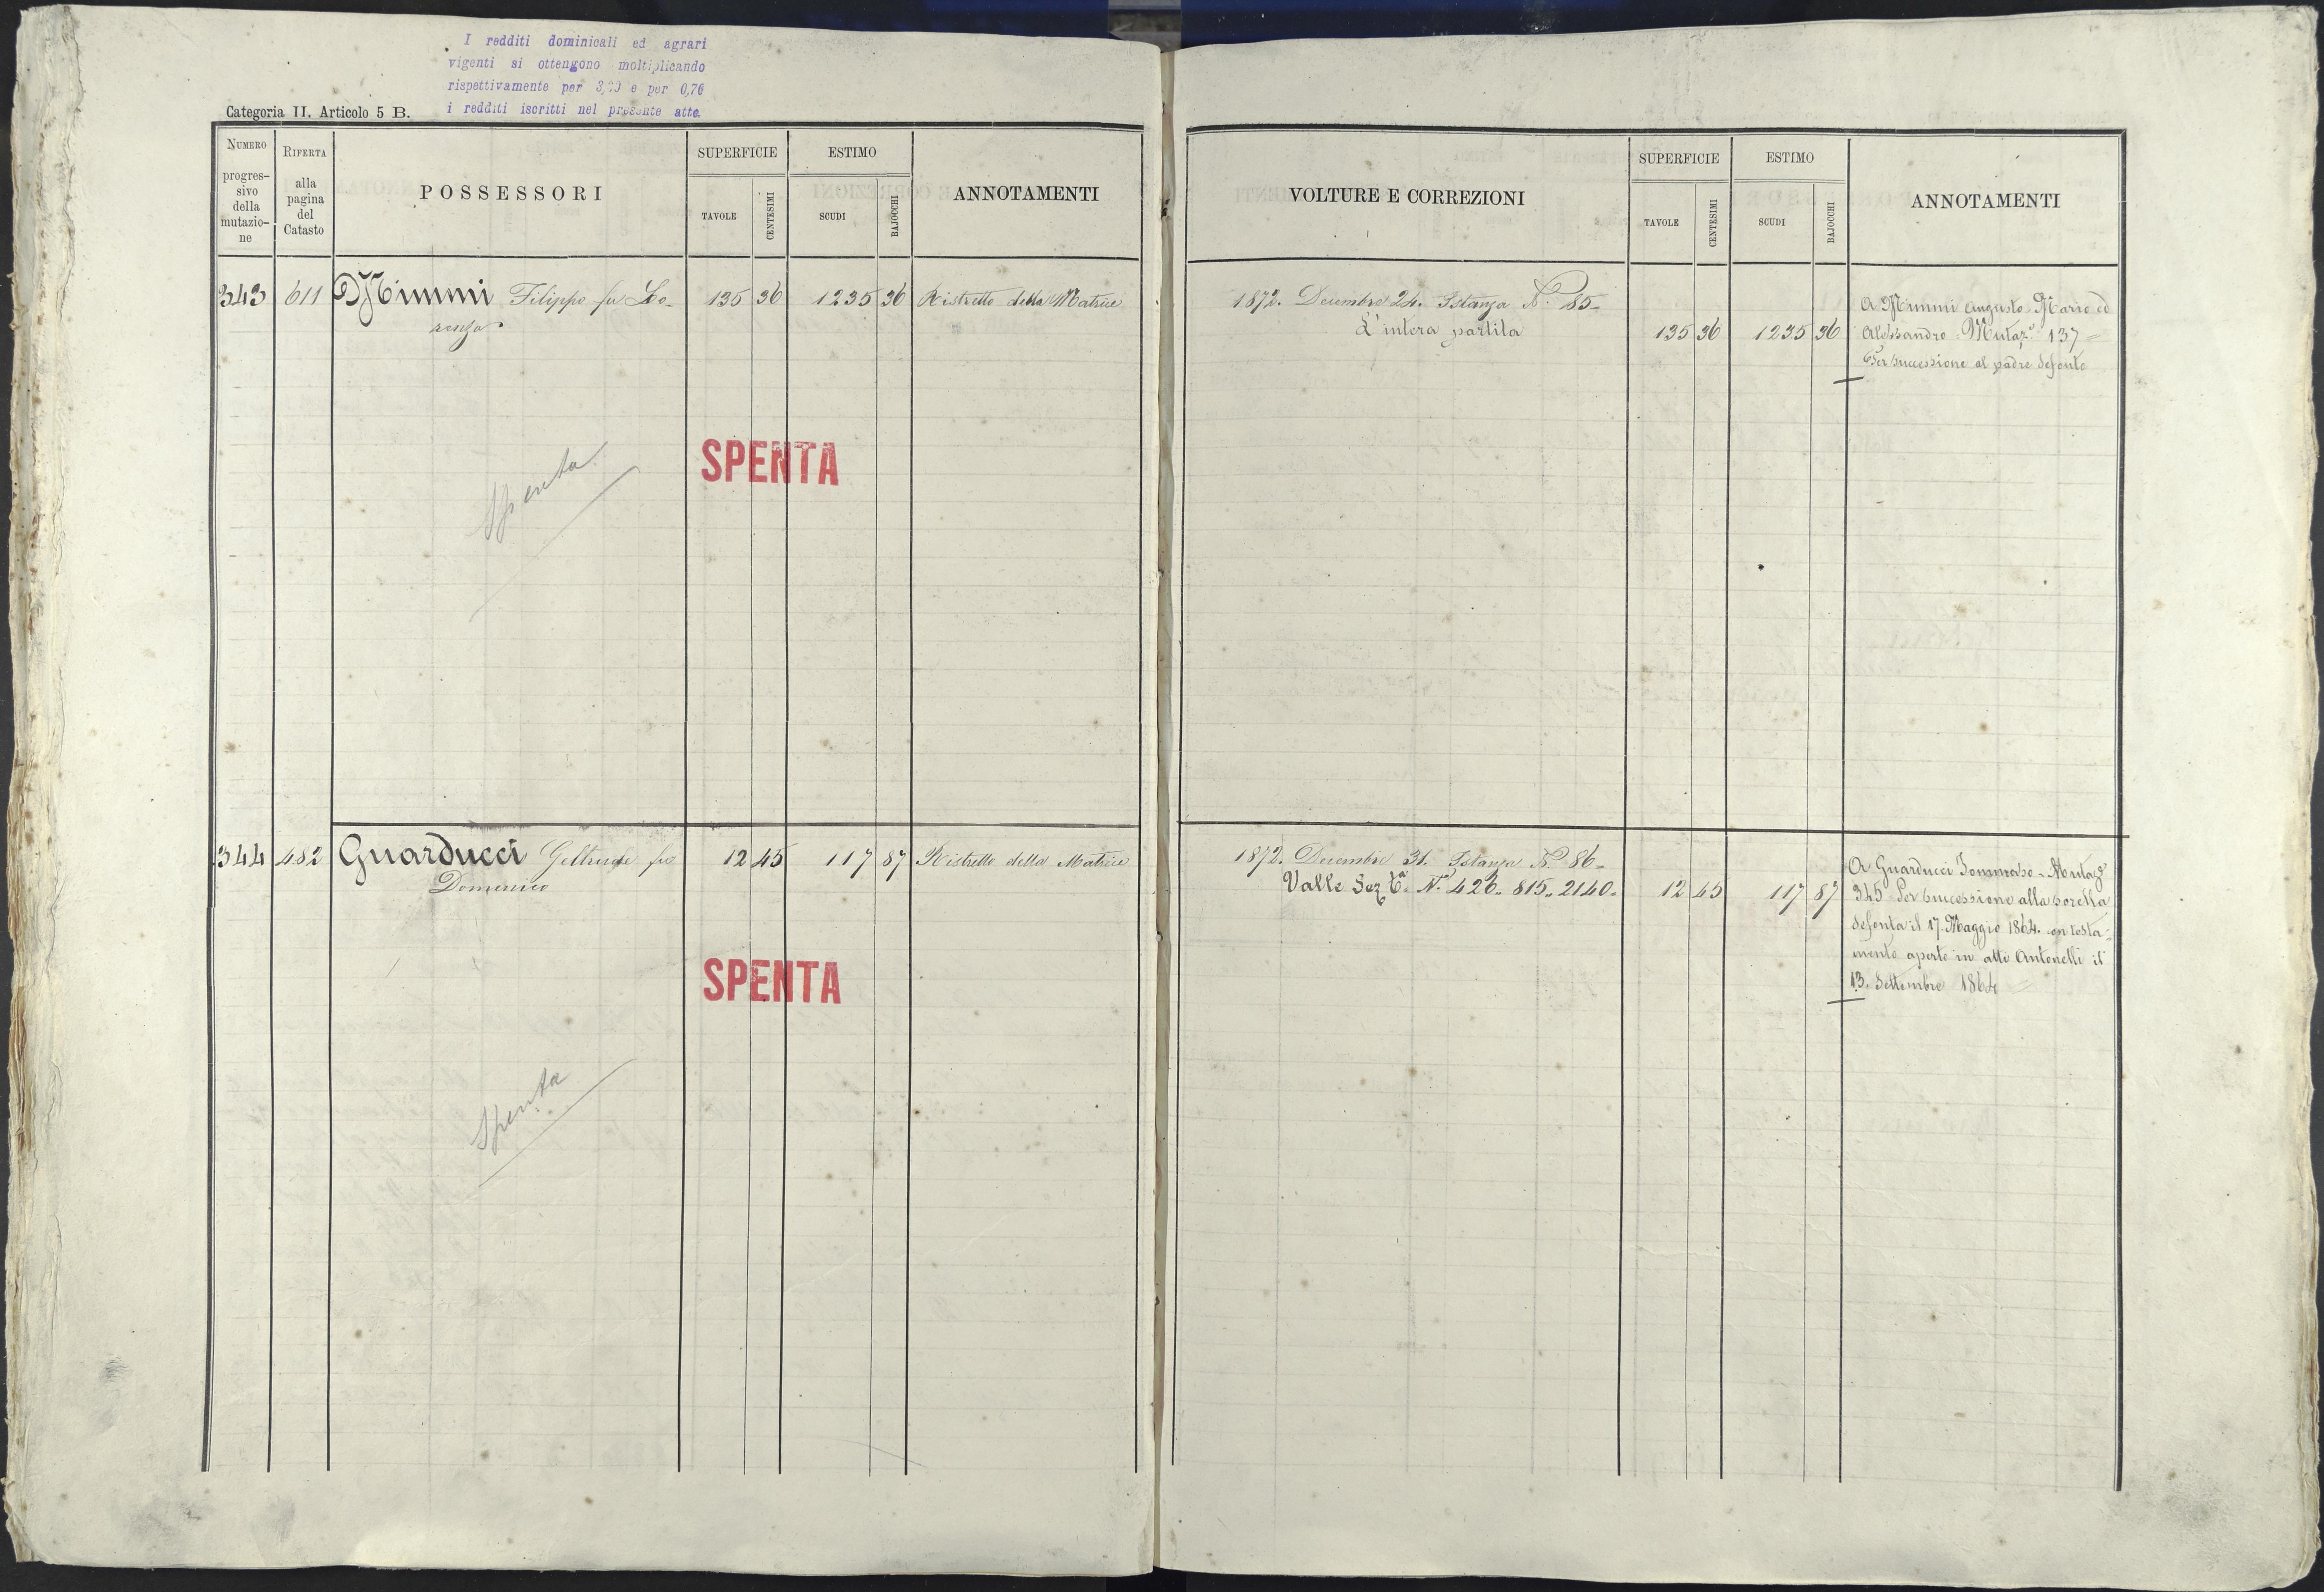 I redditi dominicali ed agrari
vigenti si ottengono moltiplicando
rispettivamente per e per 0,76
i redditi iscritti nel presente atto.
Categoria II. Articolo 5 B.
NUMERO progres-
sivo
della
mutazio-
ne
RIFERTA
alla
pagina
del
Catasto
POSSESSORI
SUPERFICIE
TAVOLE
CENTESIMI
ESTIMO
SCUDI
BAJOCCHI
ANNOTAMENTI
343 611 Mimmi Filippo fu Lo- 135 36 1235 36 Ristretto della Matrice
renzo
Spenta
SPENTA
344 482 Guarducci Geltrude fu 12 45 117 87 Ristretto della Matrice
Domenico
SPENTA
Spenta
VOLTURE E CORREZIONI
SUPERFICIE
TAVOLE
CENTESIMI
ESTIMO
SCUDI
BAJOCCHI
ANNOTAMENTI
1872. Decembre 24. Istanza N.º 85-
L'intera partita 135 36 1235 36
A Mimmi Augusto Mario ed
Alessandro Mutaz.e 137
Per successione al padre defonto
1872. Decembre 31. Istanza N.º 86-
Valle Sez N.i 426. 815. 2140. 12 45 117 87
A Guarducci Tommaso - Mutaz.e
345 Per successione alla sorella
defonta il 17. Maggio 1864. con testa-
mento aperto in atti Antonelli il
13. Settembre 1864